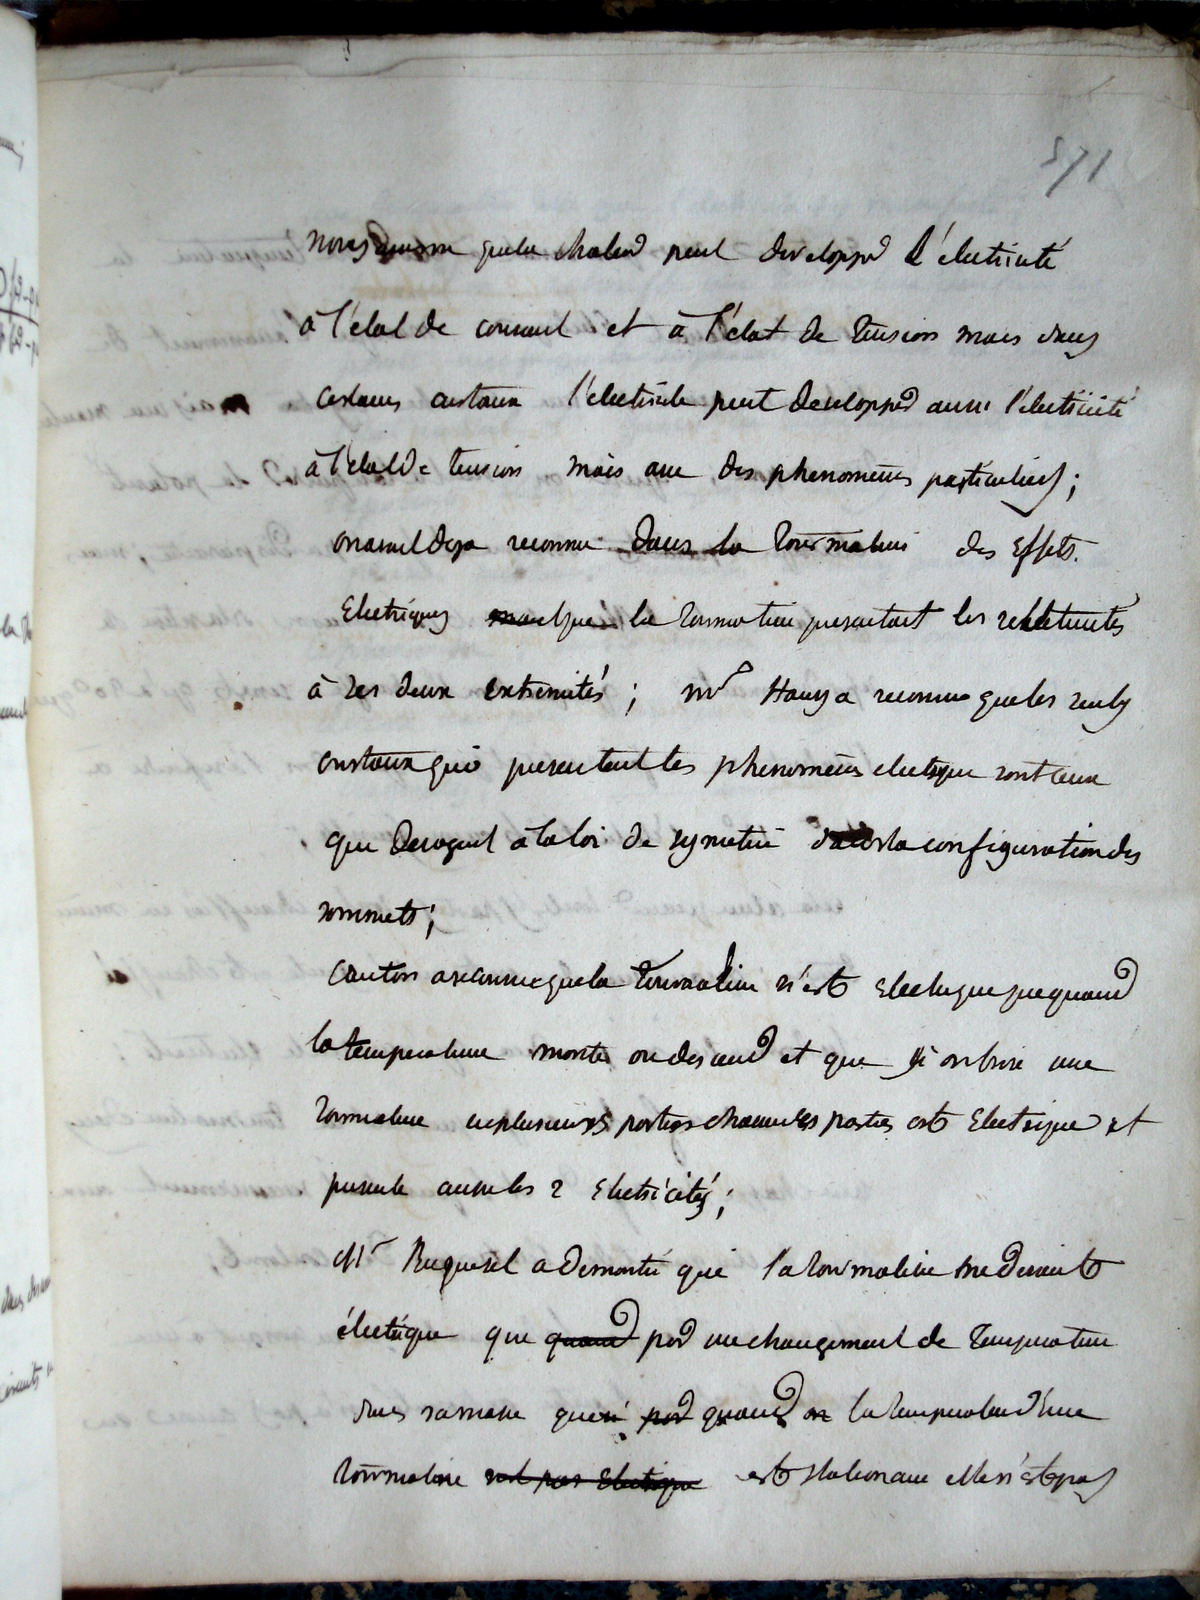 571
nous avons que la chaleur peut developper l'électricité
à l'état de courant et à l'état de tension mais dans
certains cristaux l'électricité peut developper aussi l'électricité
à l'état de tension mais avec des phenomènes particuliers;
on avait deja reconnu dans la tourmaline des effets
Electriques la tourmaline presentait les électricités
à ses deux extremités; Mr Hauy a reconnu que les seuls
cristaux qui presentent les phenomènes electrique sont ceux
qui derogent à la loi de symetrie dans la configuration des
sommets;
Canton a reconnu que la Tourmaline n'est Electrique que quand
la température monte ou descend et que si on brise une
tourmaline en plusieurs parties chacunes parties est Electrique et
presente aussi les 2 Electricités;
Mr Bequerel a demontré que la tourmaline ne devient
électrique que quand par un changement de Temperature
dans sa masse que si par quand on la temperature d'une
tourmaline est pas Electrique est stationnaire elle n'est pas